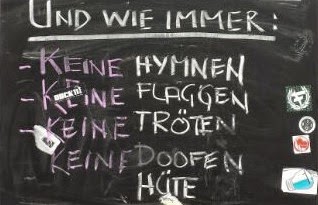 UND WIE IMMER:
- KEINE HYMNEN
- KEINE FLAGGEN
- KEINE TRÖTEN
KEINE DOOFEN
HÜTE